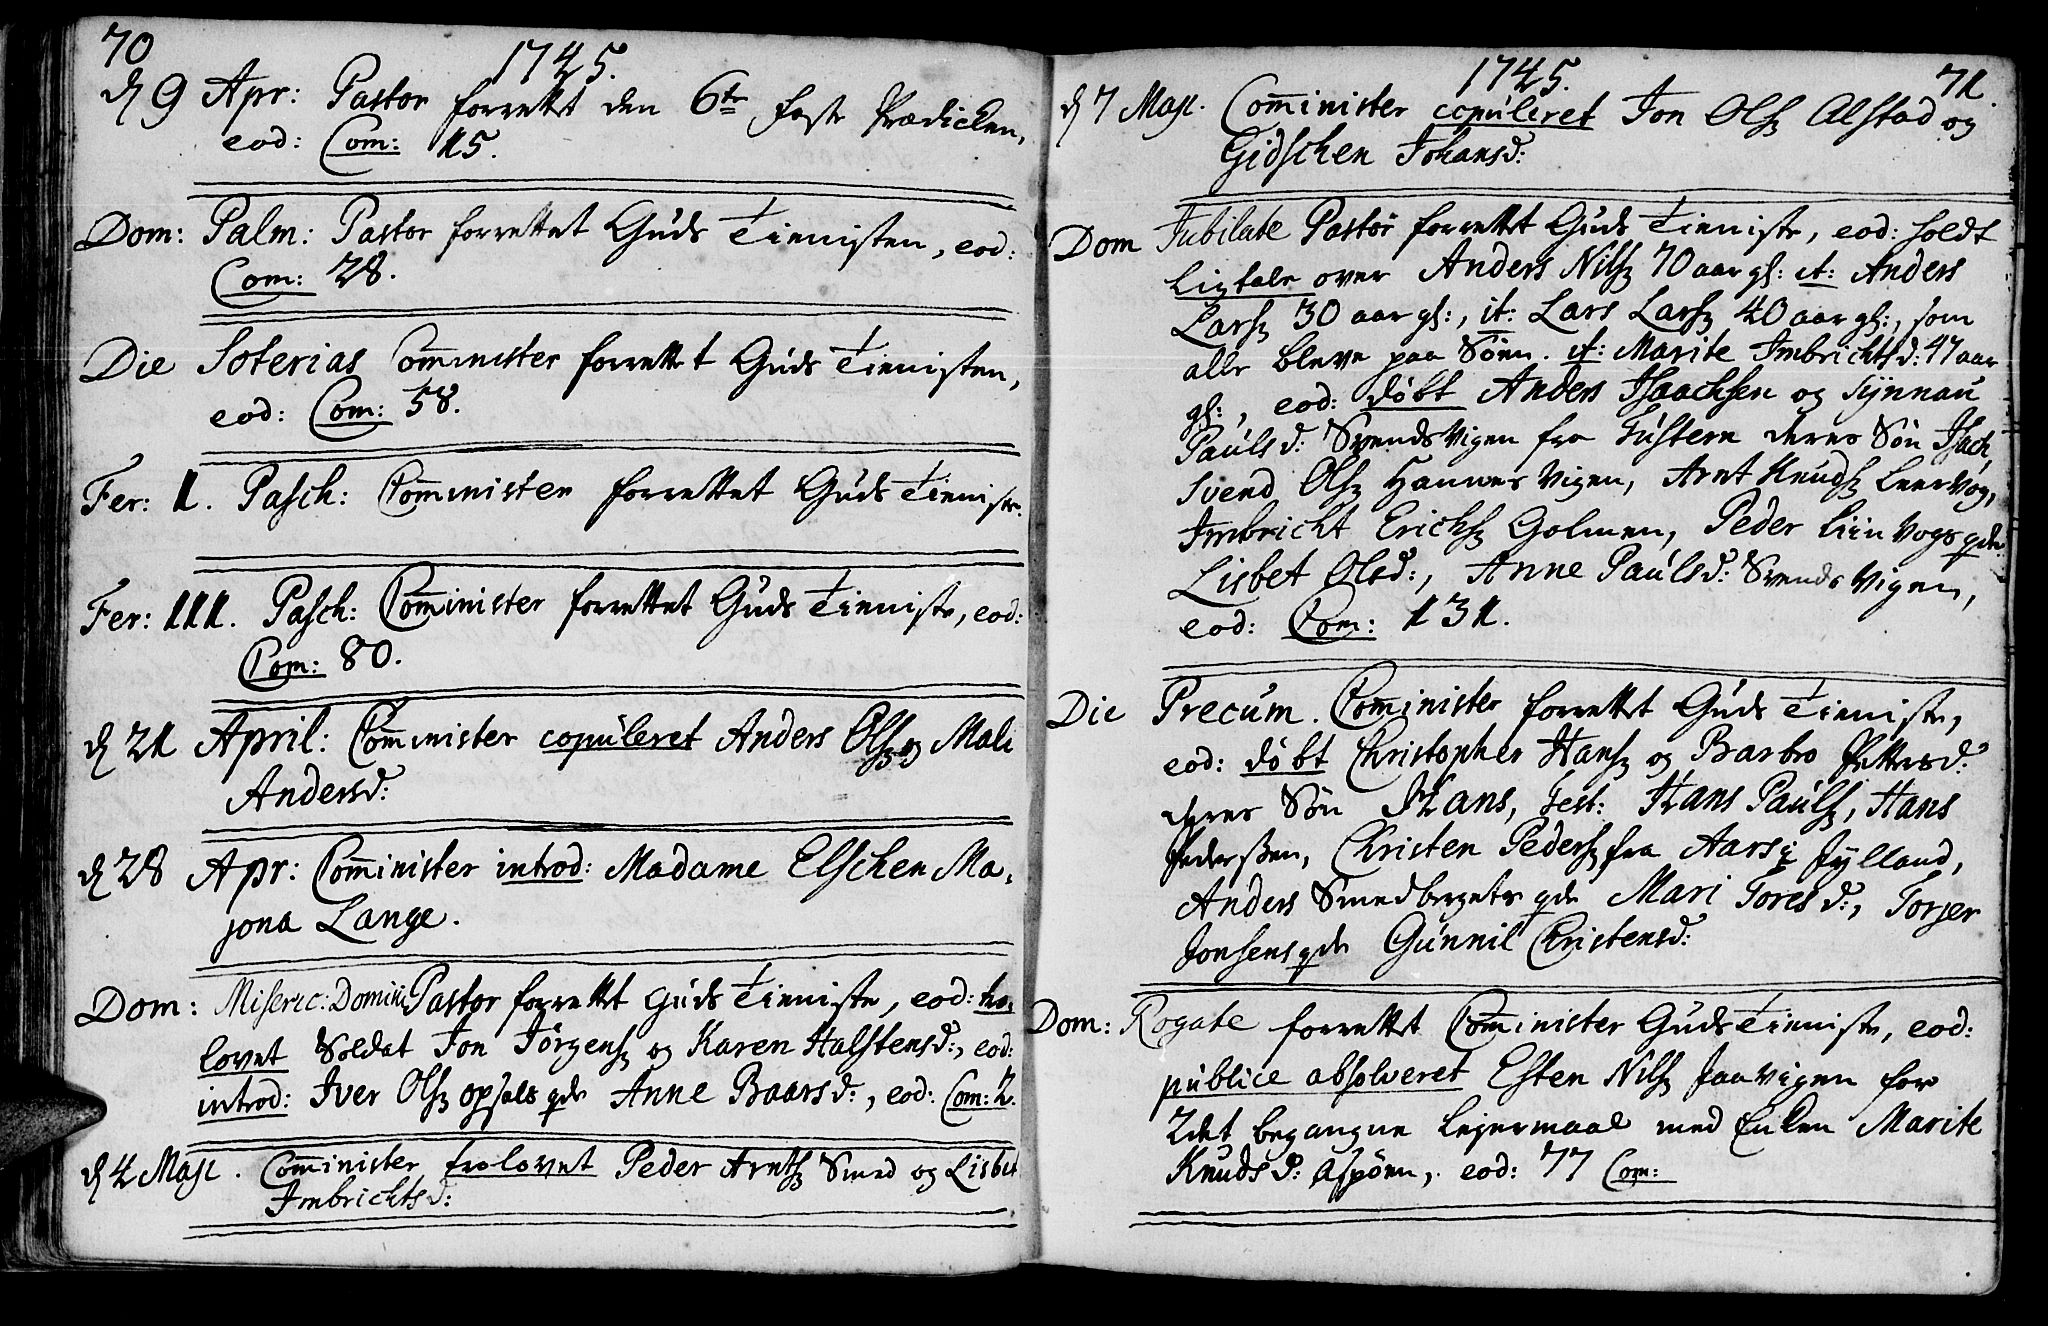 70
1745.
d 9 Apr: Pastor forrettet den 6te faste Prædicken,
eod: Com: 15.
Dom: Palm: Pastor forrettet Guds Tienisten, eod:
Com: 28.
Die Soterias Comminister forrettet Guds Tienisten,
eod: Com: 58.
Fer: II. Pasch: Comminister forrettet Guds Tieniste.
Fer: III. Pasch: Comminister forrettet Guds Tieniste, eod:
Com: 80.
d 21 April: Comminister copuleret Anders Ols: og Mali
Andersd:
d 28 Apr: Comminister introd: Madame Elschen Ma-
jona Lange.
Dom: Miseric: Domini Pastor forrettet Guds Tieniste, eod: tro-
lovet Soldat Jon Jörgens: og Karen Halstensd:, eod:
introd: Iver Ols: opsals qde Anne Baarsd:, eod: Com: 2.
d 4 Maji. Comminister trolovet Peder Arnts: Smed og Lisbet
Imbrichtsd:
1745.
71.
d 7 Maji. Comminister copuleret Jon Ols: Alstad og
Gidschen Johansd:
Dom Jubilate Pastor forrettet Guds Tieniste, eod: holdt
Ligtale over Anders Nils: 70 aar gl: it: Anders
Lars: 30 aar gl:, it: Lars Lars: 40 aar gl:, som
alle bleve paa Söen. it: Marite Imbrichtsd: 47 aar
gl:, eod: döbt Anders Isaachsen og Synnau
Paulsd: Svends Vigen fra Tustern deres Sön Isach,
Svend Ols: Hannes Vigen, Arnt Knuds: Leervog,
Imbricht Erichs: Golmen, Peder Liinvogs qde
Lisbet Olsd:, Anne Paulsd: Svends Vigen,
eod: Com: 131.
Die Precum. Comminister forrettet Guds Tieniste,
eod: döbt Christopher Hans: og Barbro Pettersd:
deres Sön Hans, Test: Hans Pauls:, Hans
Pederssen, Christen Peders: fra Aars i Jylland,
Anders Smedbergets qde Mari Toresd:, Torger
Jonsens qde Gunnil Christensd:
Dom: Rogate forrettet Comminister Guds Tieniste, eod:
publice absolveret Esten Nils: Jaavigen for
2det begangne Lejermaal med Enken Marite
Knudsd: Aspöen, eod: 77 Com: